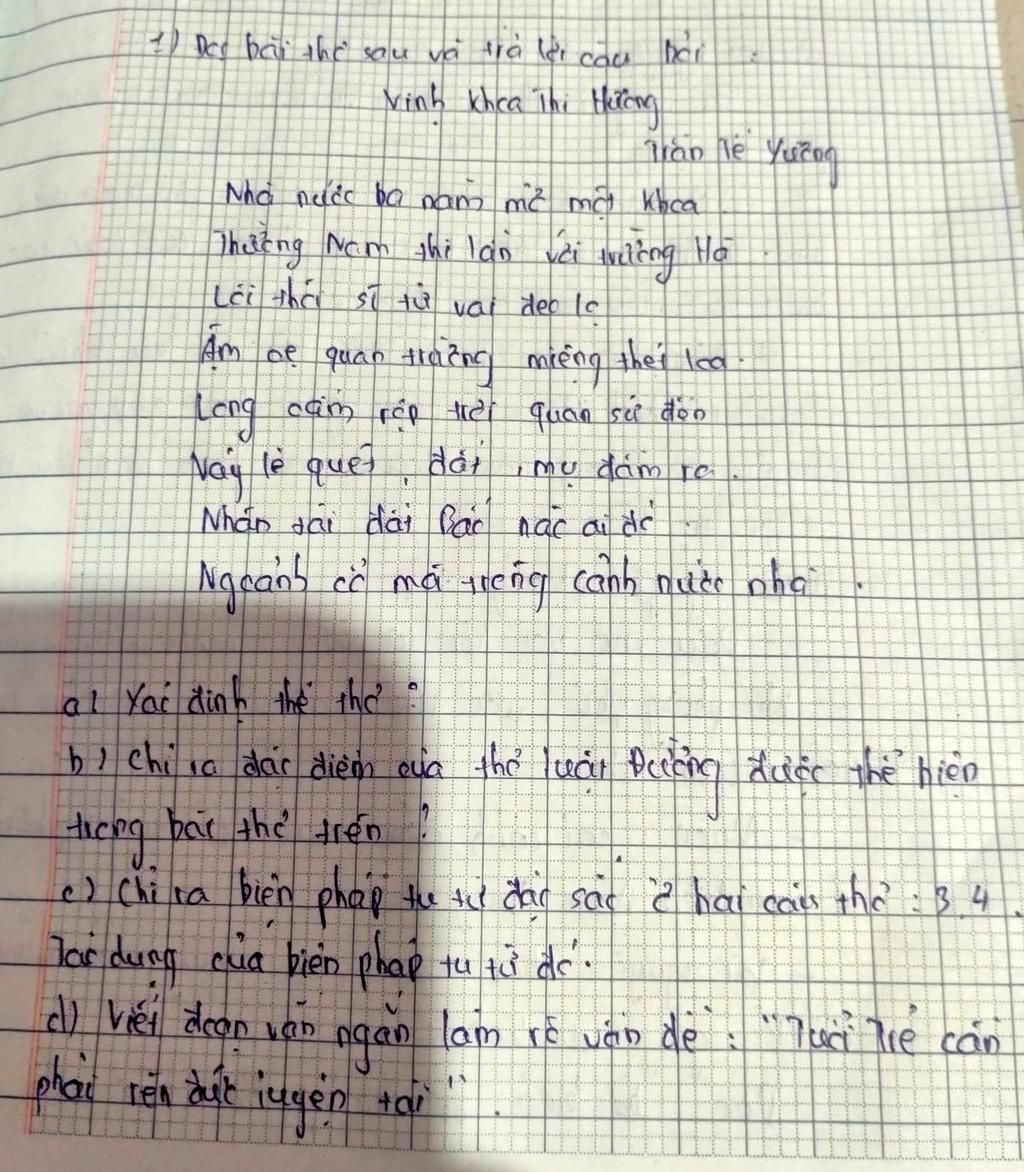 1) Đọc bài thơ sau và trả lời câu hỏi :
Vịnh khoa thi Hương
Trần Tế Xương
Nhà nước ba năm mở một khoa
Trường Nam thi lẫn với trường Hà .
Lôi thôi sĩ tử vai đeo lọ
Ậm oẹ quan trường miệng thét loa .
Lọng cắm rợp trời quan sứ đến
Váy lê quét đất , mụ đầm ra .
Nhân tài đất Bắc nào ai đó .
Ngoảnh cổ mà trông cảnh nước nhà .
a) Xác định thể thơ ?
b) Chỉ ra đặc điểm của thơ luật Đường được thể hiện
trong bài thơ trên ?
c) Chỉ ra biện pháp tu từ đặc sắc ở hai câu thơ : 3.4 .
Tác dụng của biện pháp tu từ đó .
d) Viết đoạn văn ngắn làm rõ vấn đề : "Tuổi trẻ cần
phải rèn đức luyện tài" .